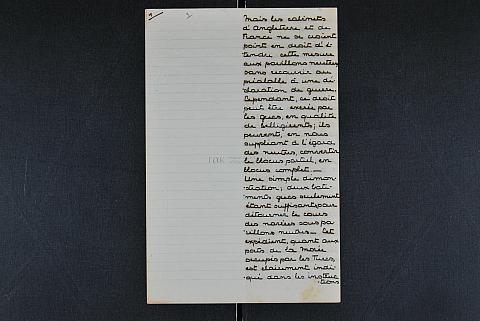 Mais les cabinets
d'Angleterre et de
France ne se croient
point en droit d'é-
tendre cette mesure
aux pavillons neutres
sans recourir au
préalable à une dé-
claration de guerre.
Cependant, ce droit
peut être exercé par
les grecs, en qualité
de belligérents; ils
peuvent, en nous
suppléant à l'égard
des neutres, convertir
le blocus partiel, en
blocus complet.—
Une simple démon-
stration, deux bati-
ments grecs seulement
étant suffisants pour
détourner le cours
des navires sous pa-
villons neutres— Cet
expédient, quant aux
ports de la Morée
occupés par les Turcs,
est clairement indi-
qué dans les instruc-
tions